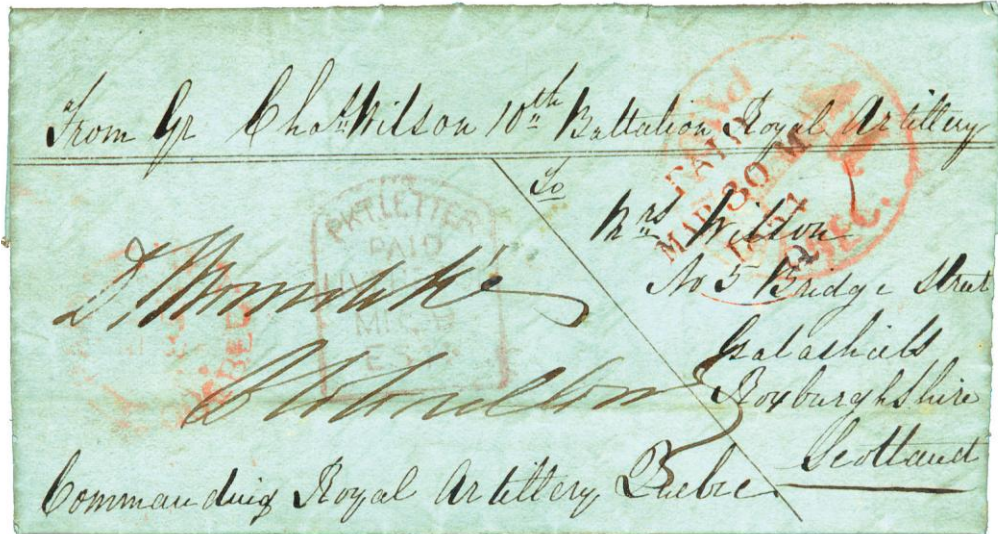 From Gr Chas Wilson 10th Battalion Royal Artillery
To
Mrs Wilson
No 5 Bridge Street
Galashiels
Roxburghshire
Scotland
PAID
30 M
1851
PKT. LETTER
PAID
Commanding Royal Artillery Quebec